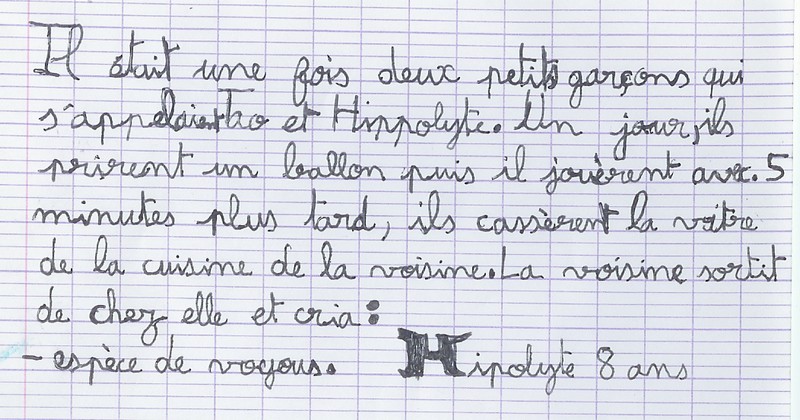 Il était une fois deux petits garçons qui
s'appelaient Tao et Hippolyte. Un jour, ils
prirent un ballon puis il jouèrent avec. 5
minutes plus tard, ils cassèrent la vitre
de la cuisine de la voisine. La voisine sortit
de chez elle et cria :
- espèce de voyous. Hipolyte 8 ans